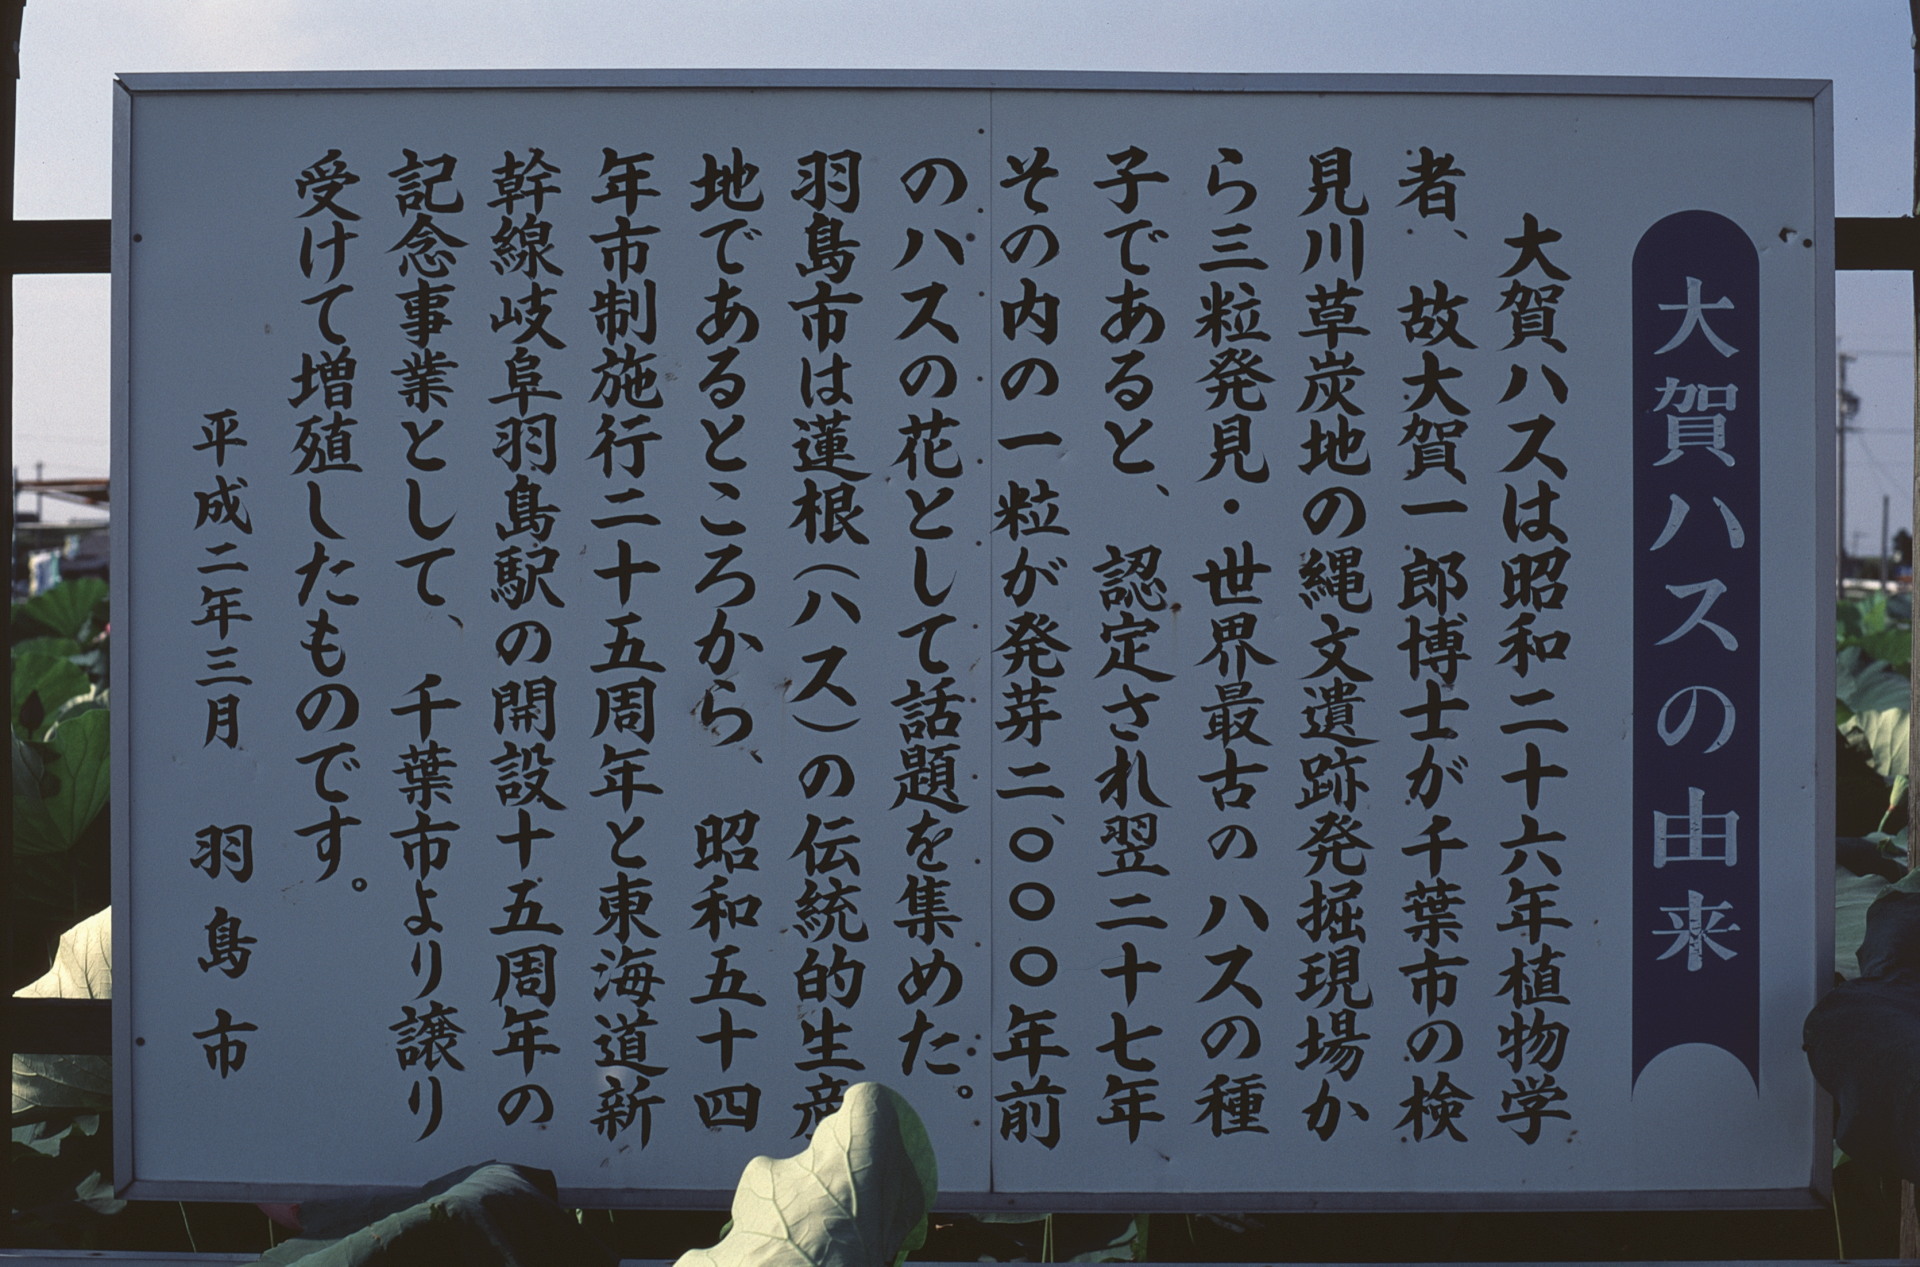 大賀ハスの由来
大賀ハスは昭和二十六年植物学
者、故大賀一郎博士が千葉市の検
見川草炭地の縄文遺跡発掘現場か
ら三粒発見・世界最古のハスの種
子であると、認定され翌二十七年
その内の一粒が発芽二、〇〇〇年前
のハスの花として話題を集めた。
羽島市は蓮根(ハス)の伝統的生産
地であるところから、昭和五十四
年市制施行二十五周年と東海道新
幹線岐阜羽島駅の開設十五周年の
記念事業として、千葉市より譲り
受けて増殖したものです。
平成二年三月 羽島市